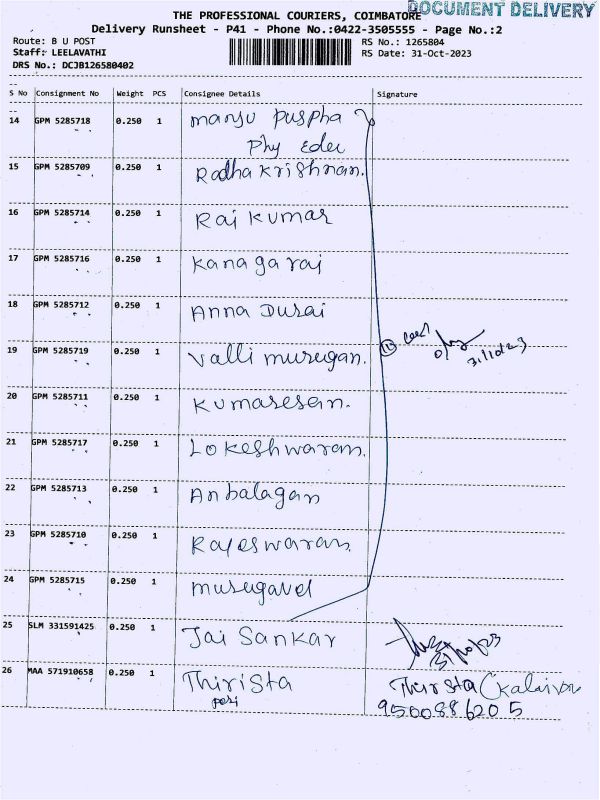 DOCUMENT DELIVERY
THE PROFESSIONAL COURIERS, COIMBATORE
Delivery Runsheet - P41 - Phone No.:0422-3505555 - Page No.:2
Route: B U POST
RS No.: 1265804
Staff: LEELAVATHI
RS Date: 31-Oct-2023
DRS No.: DCJB126580402
S No Consignment No Weight PCS Consignee Details Signature
14 GPM 5285718 0.250 1 Manju Puspha
Phy
15 GPM 5285709 0.250 1 Radha Krishnan.
16 GPM 5285714 0.250 1 Raj Kumar
17 GPM 5285716 0.250 1 Kanagaraj
18 GPM 5285712 0.250 1 Anna Durai
19 GPM 5285719 0.250 1 Valli murugan. 11
31/10/23
20 GPM 5285711 0.250 1 Kumaresan.
21 GPM 5285717 0.250 1 Lokeshwaran.
22 GPM 5285713 0.250 1 Anbalagan
23 GPM 5285710 0.250 1 Rajeswaran.
24 GPM 5285715 0.250 1 murugavel
25 SLM 331591425 0.250 1 Jai Sankar
26 MAA 571910658 0.250 1 Thirista Thirsta
9500886205